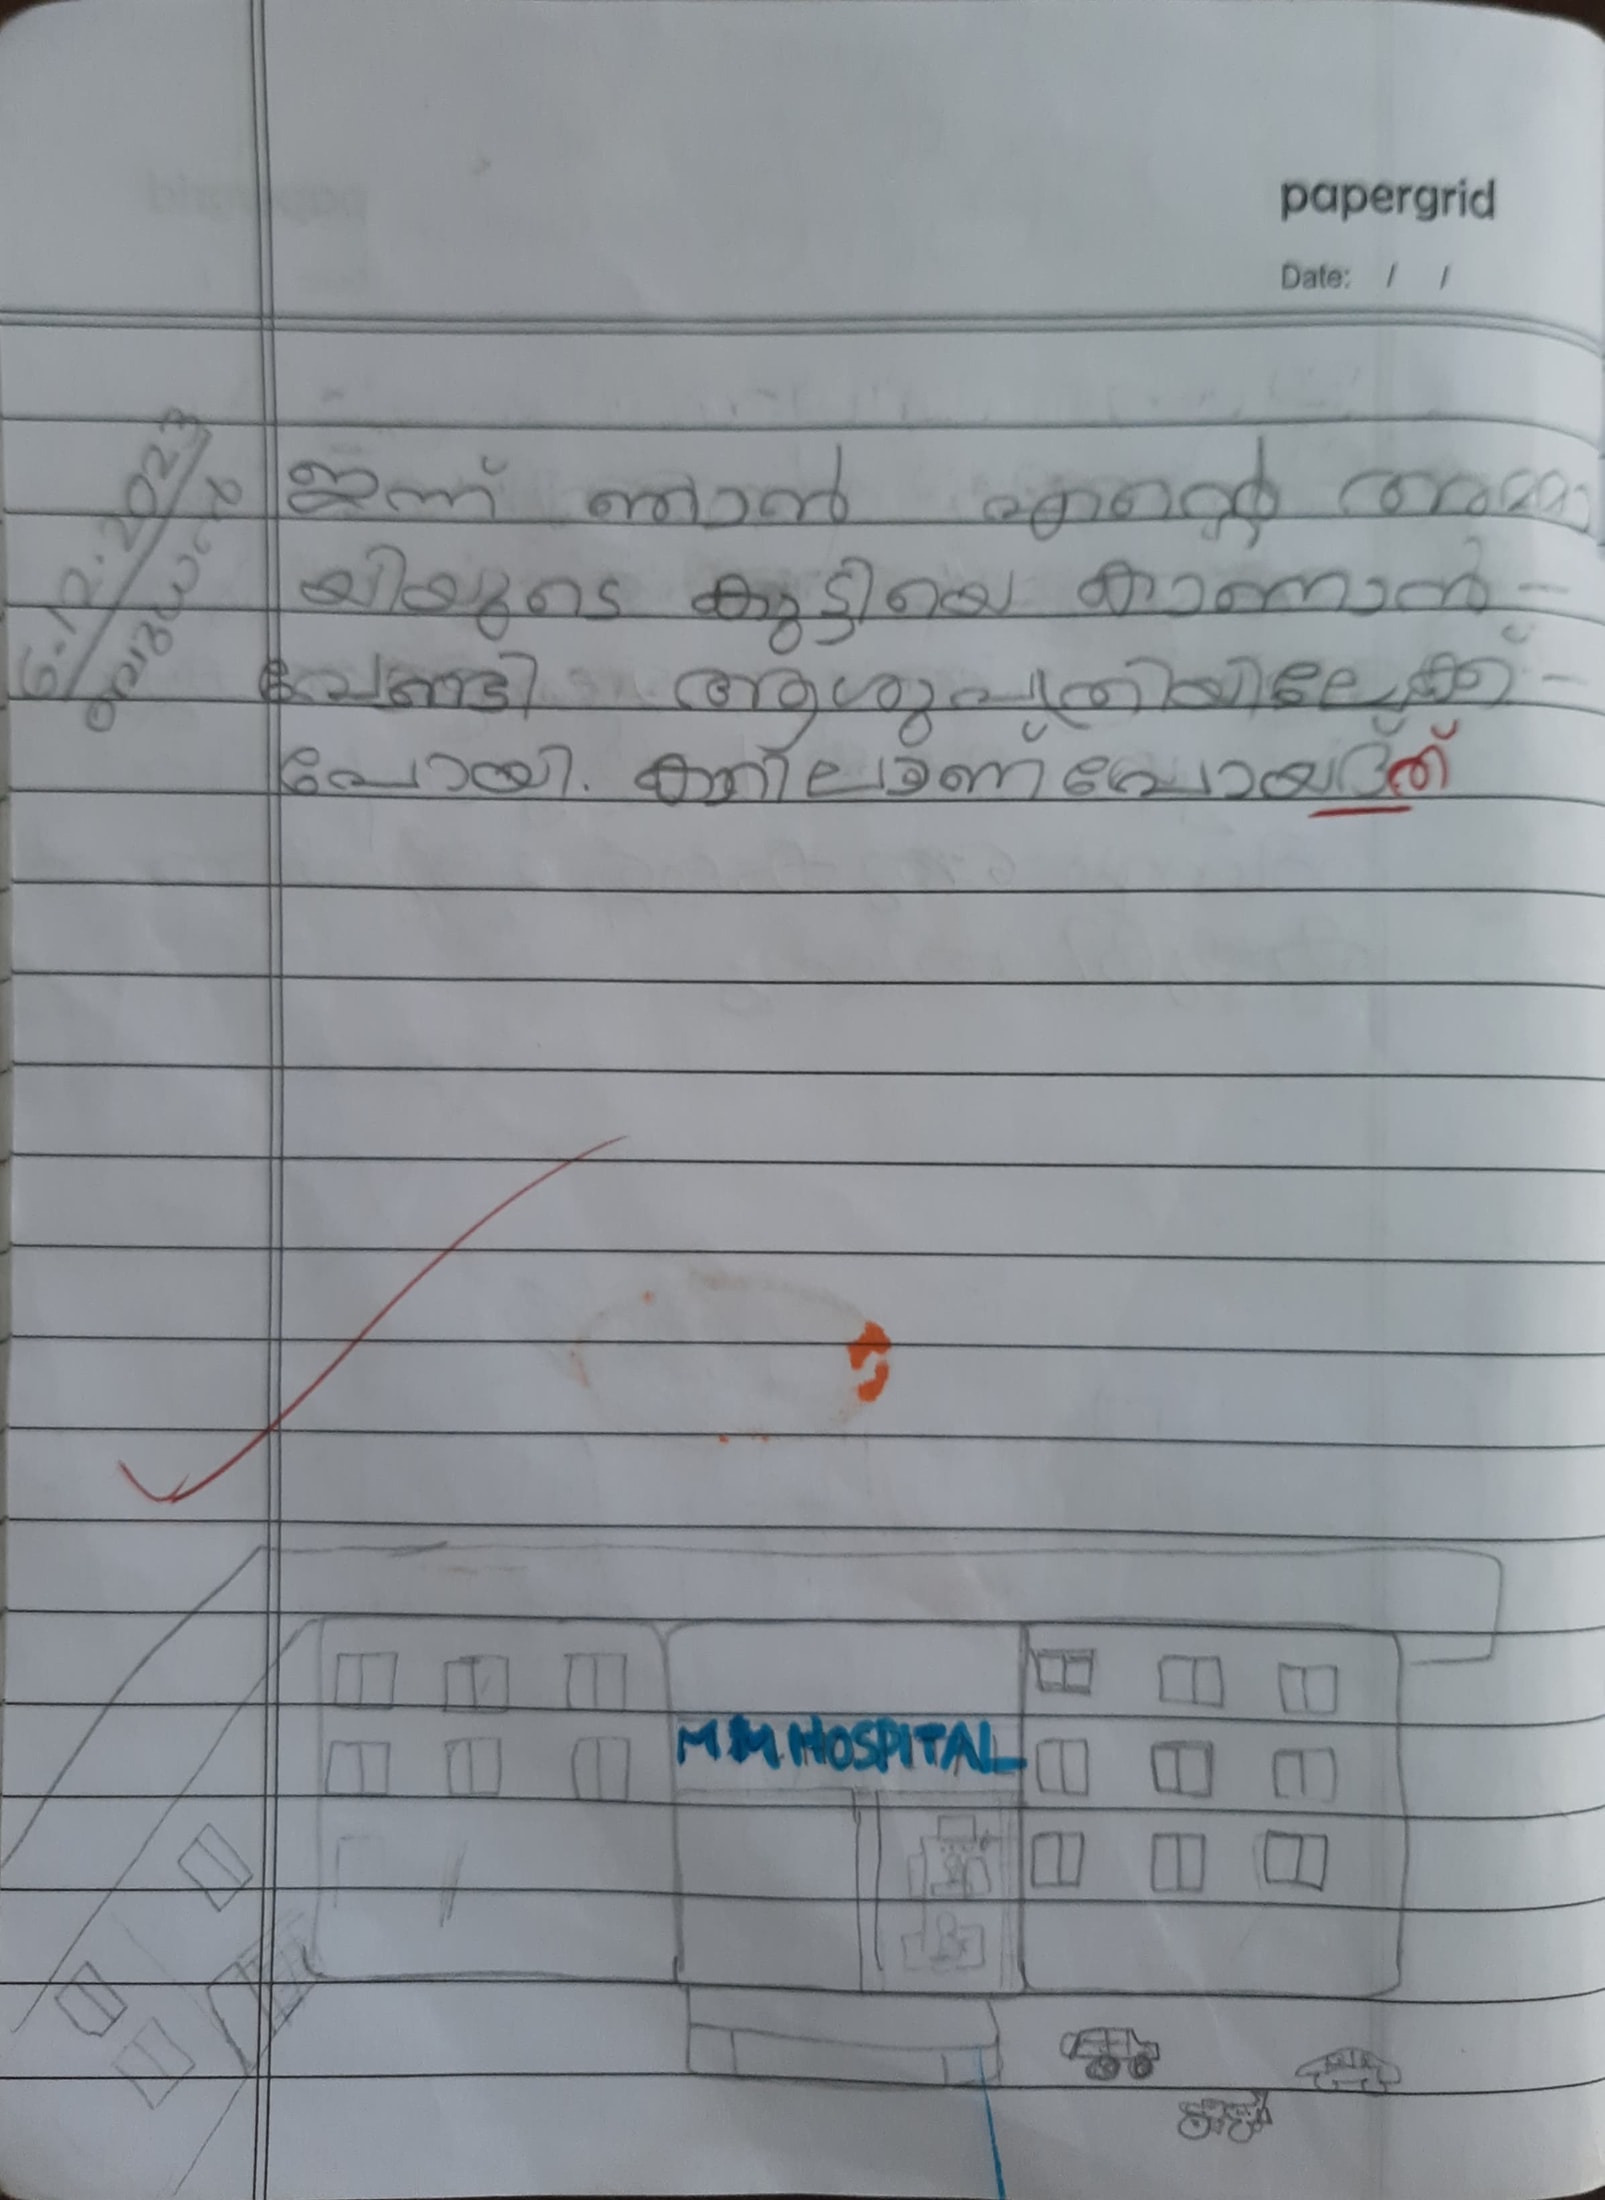 papergrid
Date: / /
6.12.2023
ഇന്ന് ഞാൻ എന്റെ അമ്മാ
യിയുടെ കുട്ടിയെ കാണാൻ -
വേണ്ടി ആശുപത്രിയിലേക്ക് -
പോയി. പോയത്
M.M.HOSPITAL